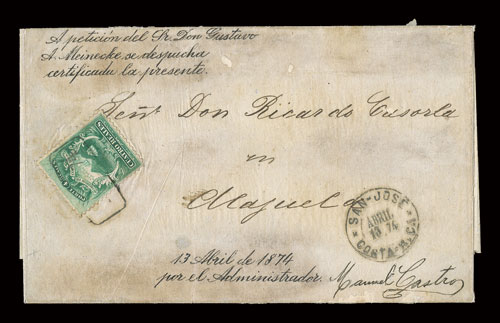 A petición del Sr. Don Gustavo
A. Meinecke se despacha
certificada la presente.
Señr Don Ricardo Casorla
en
Alajuela
CUATRO REALES
SAN-JOSE
ABRIL
13 74
COSTA-RICA
13 Abril de 1874
por el Administrador. Manuel Castro